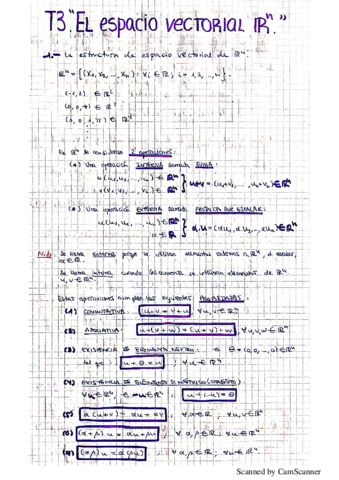 T3 "EL ESPACIO VECTORIAL ℝⁿ."
1.- La estructura de espacio vectorial de ℝⁿ.
ℝⁿ = {(x₁, x₂, ..., xₙ) : xᵢ ∈ ℝ ; i = 1, 2, ..., n}.
(-1, 2) ∈ ℝ²
∈ ℝ³
∈ ℝ⁴
En ℝⁿ se consideran 2 operaciones:
(1) Una operación INTERNA llamada SUMA:
u(u₁, u₂, ..., uₙ) ∈ ℝⁿ
v(v₁, v₂, ..., vₙ) ∈ ℝⁿ } u+v = (u₁+v₁, ..., uₙ+vₙ) ∈ ℝⁿ
(2) Una operación EXTERNA llamada PRODUCTO POR ESCALAR:
u(u₁, u₂, ..., uₙ) ∈ ℝⁿ
α ∈ ℝ } α.u = (αu₁, αu₂, ..., αuₙ) ∈ ℝⁿ
Nota: Se llama externa porque se utilizan elementos externos a ℝⁿ, el escalar,
α ∈ ℝ.
Se llama interna cuando únicamente se utilizan elementos de ℝⁿ
u, v ∈ ℝⁿ.
Estas operaciones cumplen las siguientes PROPIEDADES:
(1) CONMUTATIVA: u+v = v+u, ∀ u, v ∈ ℝⁿ
(2) ASOCIATIVA: u+(v+w) = (u+v)+w, ∀ u, v, w ∈ ℝⁿ
(3) EXISTENCIA DE ELEMENTO NEUTRO: θ = (0, 0, ..., 0) ∈ ℝⁿ
tal que: u + θ = u ; ∀ u ∈ ℝⁿ
(4) EXISTENCIA DE ELEMENTO SIMÉTRICO (OPUESTO)
∀ u ∈ ℝⁿ, ∃ -u ∈ ℝⁿ : u + (-u) = θ
(5) α(u+v) = αu + αv, ∀ α ∈ ℝ ; ∀ u, v ∈ ℝⁿ.
(6) (α+β) u = αu + βu, ∀ α, β ∈ ℝ ; ∀ u ∈ ℝⁿ
(7) (αβ) u = α(βu) ∀ α, β ∈ ℝ ; ∀ u ∈ ℝⁿ.
Scanned by CamScanner